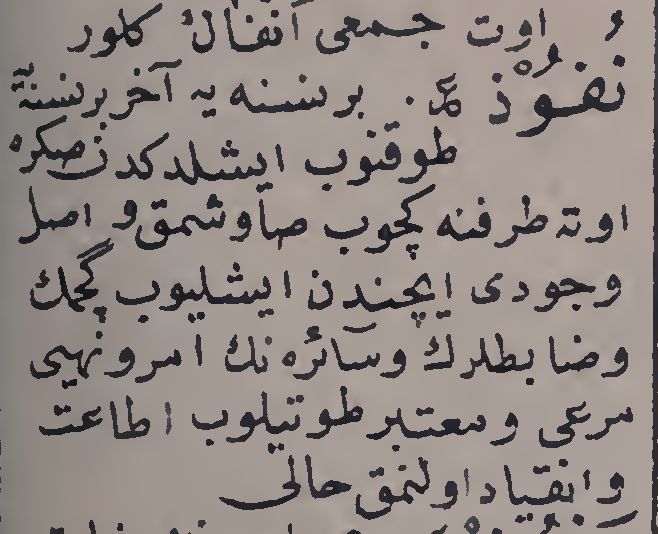 اوت جمعى انفال كلور
نُفُوْذ ع . برنسنه يه آخر برنسنه
طوقنوب ايشلدكدن صكره
اوته طرفنه كچوب صاوشمق و اصل
وجودى ايچندن ايشليوب كچمك
وضابطلرك وسائره نك امر ونهيى
مرعى ومعتبر طوتيلوب اطاعت
وانقياد اولنمق حالى